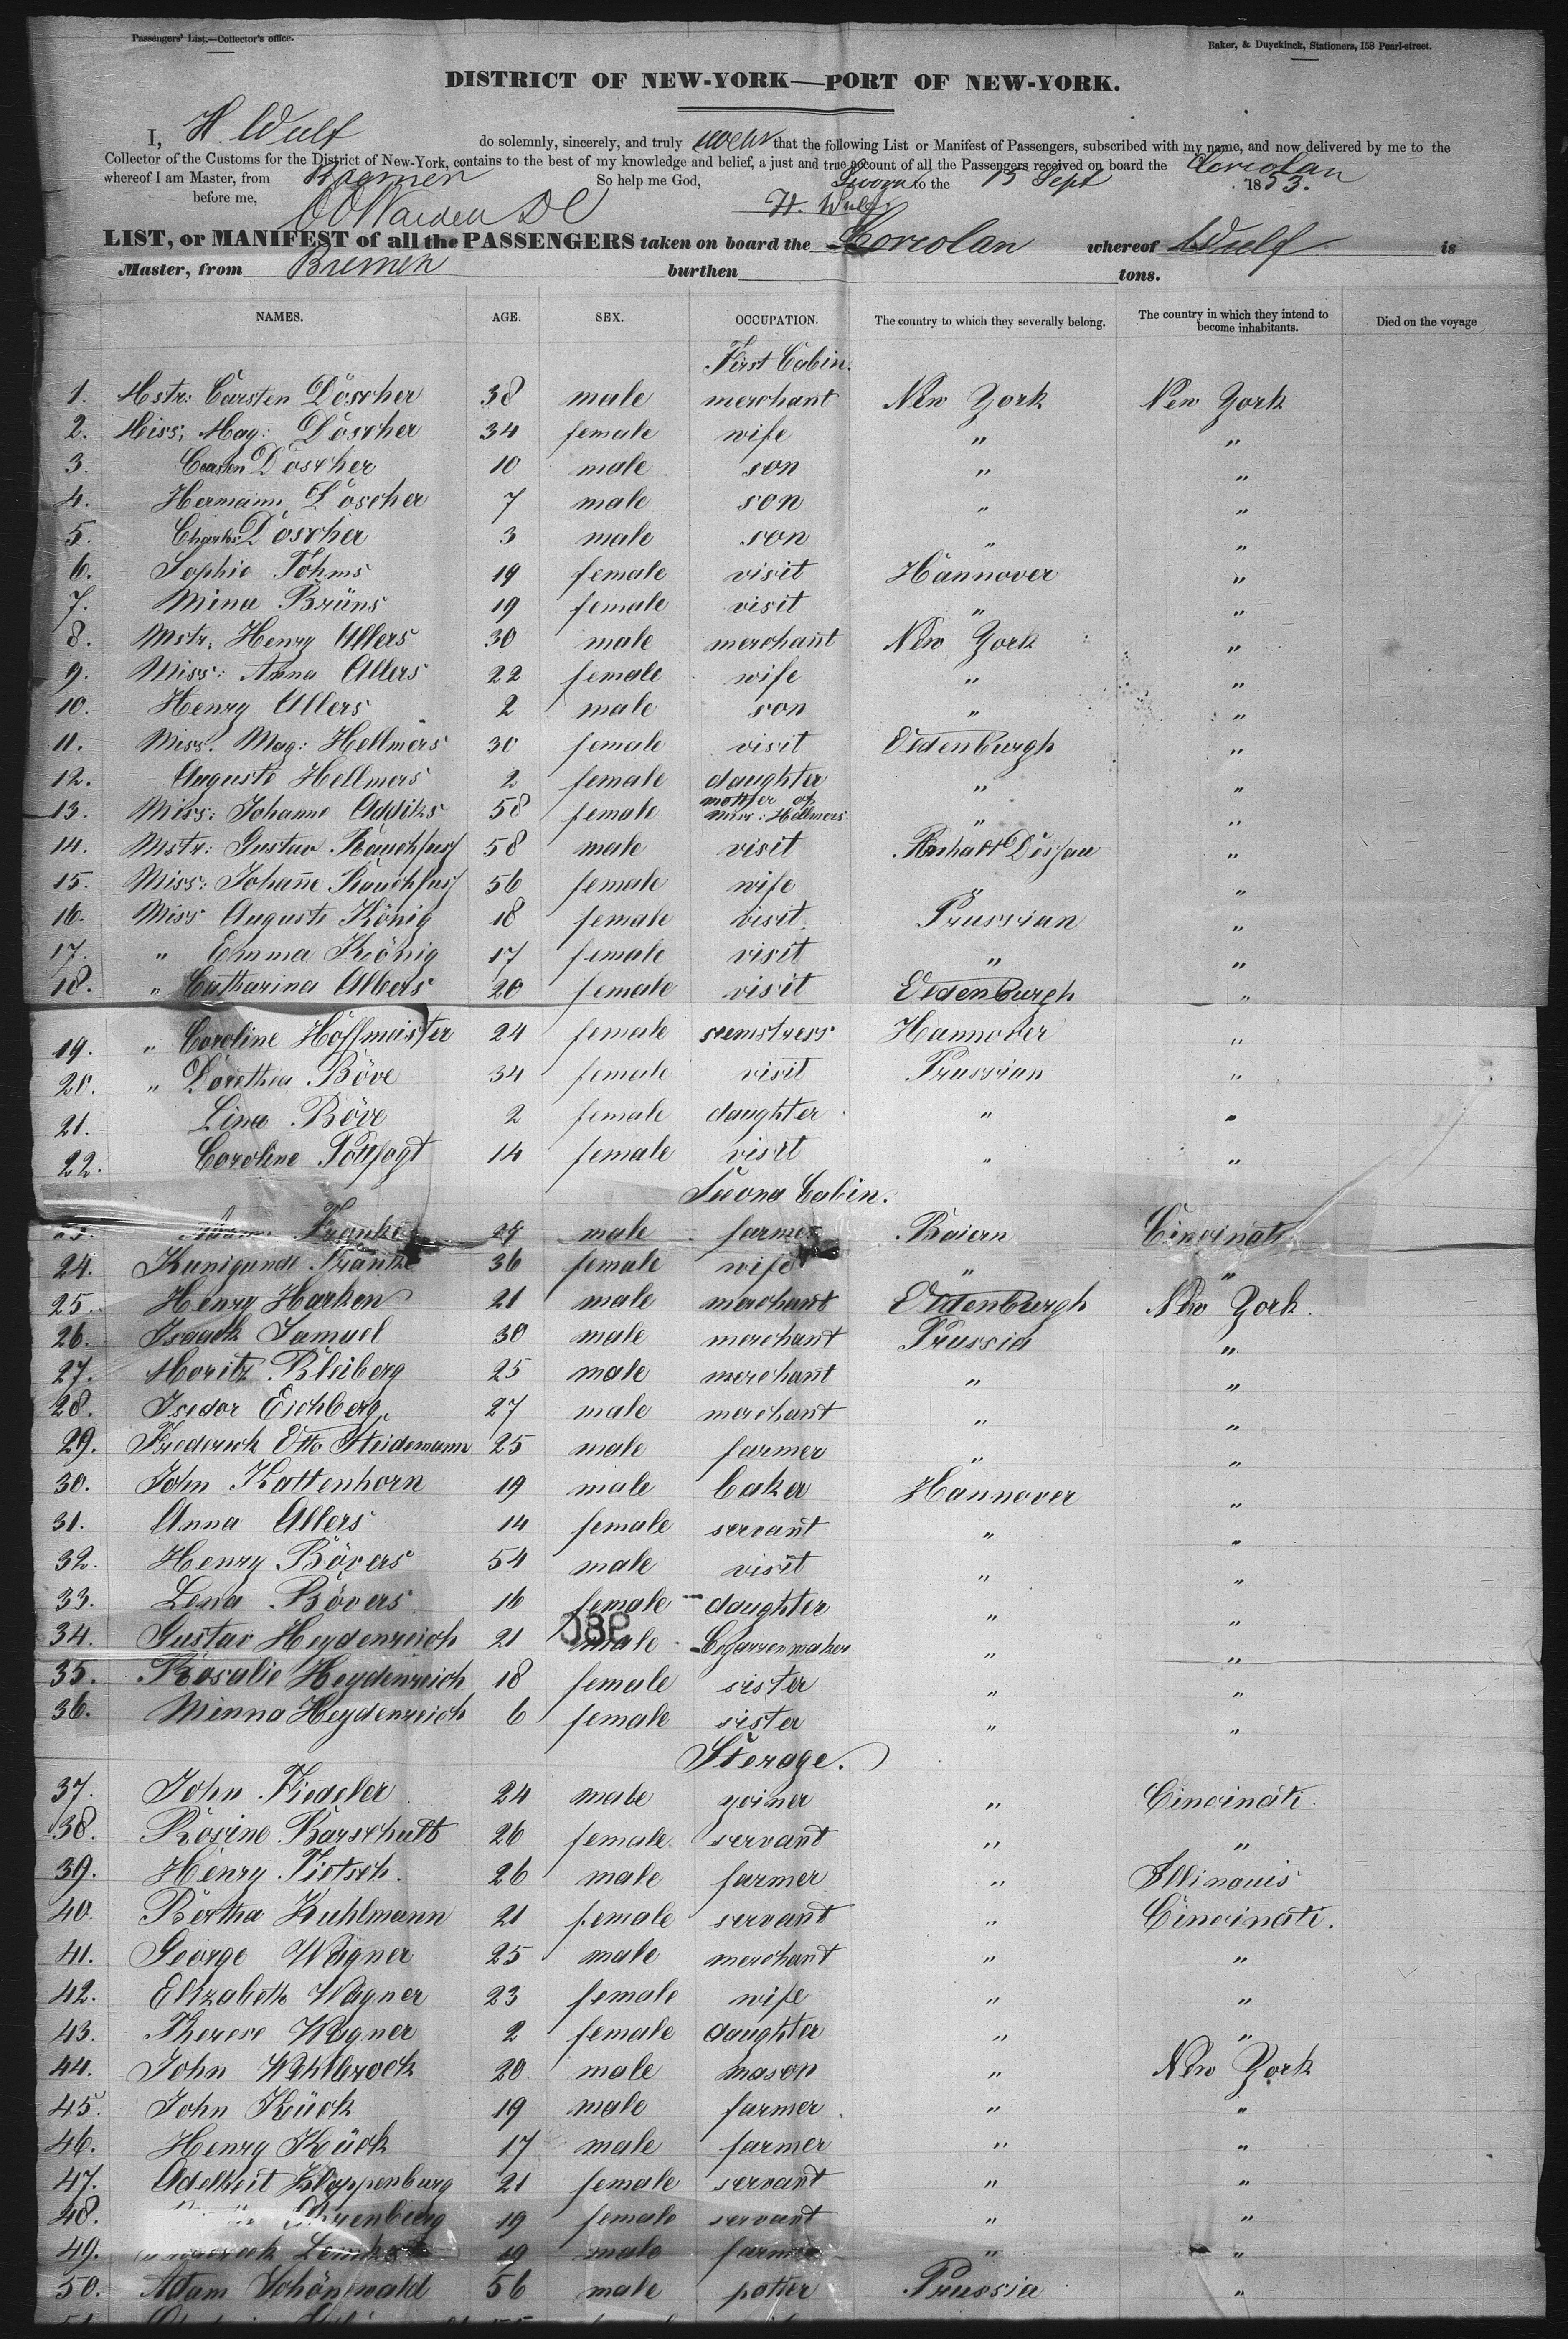 Passengers' List.—Collector's office.
Baker, & Duyckinck, Stationers, 158 Pearl-street.
DISTRICT OF NEW-YORK—PORT OF NEW-YORK.
I, H. Wulf do solemnly, sincerely, and truly swear that the following List or Manifest of Passengers, subscribed with my name, and now delivered by me to the
Collector of the Customs for the District of New-York, contains to the best of my knowledge and belief, a just and true account of all the Passengers received on board the Coriolan
whereof I am Master, from Bremen So help me God, Sworn to the 15 Sept 1853.
before me, H. Wulf
LIST, or MANIFEST of all the PASSENGERS taken on board the Coriolan whereof Wulf is
Master, from Bremen burthen tons.
NAMES. AGE. SEX. OCCUPATION. The country to which they severally belong. The country in which they intend to become inhabitants. Died on the voyage
First Cabin.
1. Mstr: Carsten Döscher 38 male merchant New York New York
2. Miss: Mag: Döscher 34 female wife " "
3. Carsten Döscher 10 male son " "
4. Hermann Döscher 7 male son " "
5. Charles Döscher 3 male son " "
6. Sophie Tohms 19 female visit Hannover "
7. Mina Brüns 19 female visit " "
8. Mstr: Henry Allers 30 male merchant New York "
9. Miss: Anna Allers 22 female wife " "
10. Henry Allers 2 male son " "
11. Miss. Mag: Hellmers 30 female visit Oldenburgh "
12. Auguste Hellmers 2 female daughter " "
13. Miss: Johanne Addiks 58 female mother of Miss: Hellmers " "
14. Mstr: Gustav Rauchfuss 58 male visit Anhalt Dessau "
15. Miss: Johanne Rauchfuss 56 female wife " "
16. Miss Auguste König 18 female visit. Prussian "
17. " Emma König 17 female visit " "
18. " Catharina Albers 20 female visit Oldenburgh "
19. " Caroline Hoffmeister 24 female seemstress Hannover "
20. " Dorethea Böve 34 female visit Prussian "
21. Lina Böve 2 female daughter " "
22. Caroline 14 female visit " "
Second Cabin.
Franke 29 male farmer Baiern Cincinati
24. Kunigunde Franke 36 female wife " "
25. Henry Harken 21 male merchant Oldenburgh New York.
26. Isaack Samuel 30 male merchant Prussia "
27. Moritz Bleiberg 25 male merchant " "
28. Isedor Eichberg 27 male merchant " "
29. Frederich Otto Heidemann 25 male farmer " "
30. John Kattenhorn 19 male baker Hannover "
31. Anna Allers 14 female servant " "
32. Henry Bövers 54 male visit " "
33. Lena Bövers 16 female daughter " "
34. Gustav Heydenreich 21 male Cegarrenmaker " "
35. Rosalie Heydenreich 18 female sister " "
36. Minna Heydenreich 6 female sister " "
Sterage.
37. John Fiedeler 24 male yoiner " Cincinati.
38. Rosine Barschutt 26 female servant " "
39. Henry Tietsch. 26 male farmer " Illinouis
40. Bertha Kuhlmann 21 female servant " Cincinati.
41. George Wagner 25 male merchant " "
42. Elizabeth Wagner 23 female wife " "
43. Therese Wagner 2 female daughter " "
44. John Wahlbrock 20 male mason " New York
45. John Kück 19 male farmer " "
46. Henry Kück 17 male farmer " "
47. Adelheit Kloppenburg 21 female servant " "
48. 19 female servant " "
49. 19 male farmer " "
50. Adam Schönewald 56 male potter Prussia "